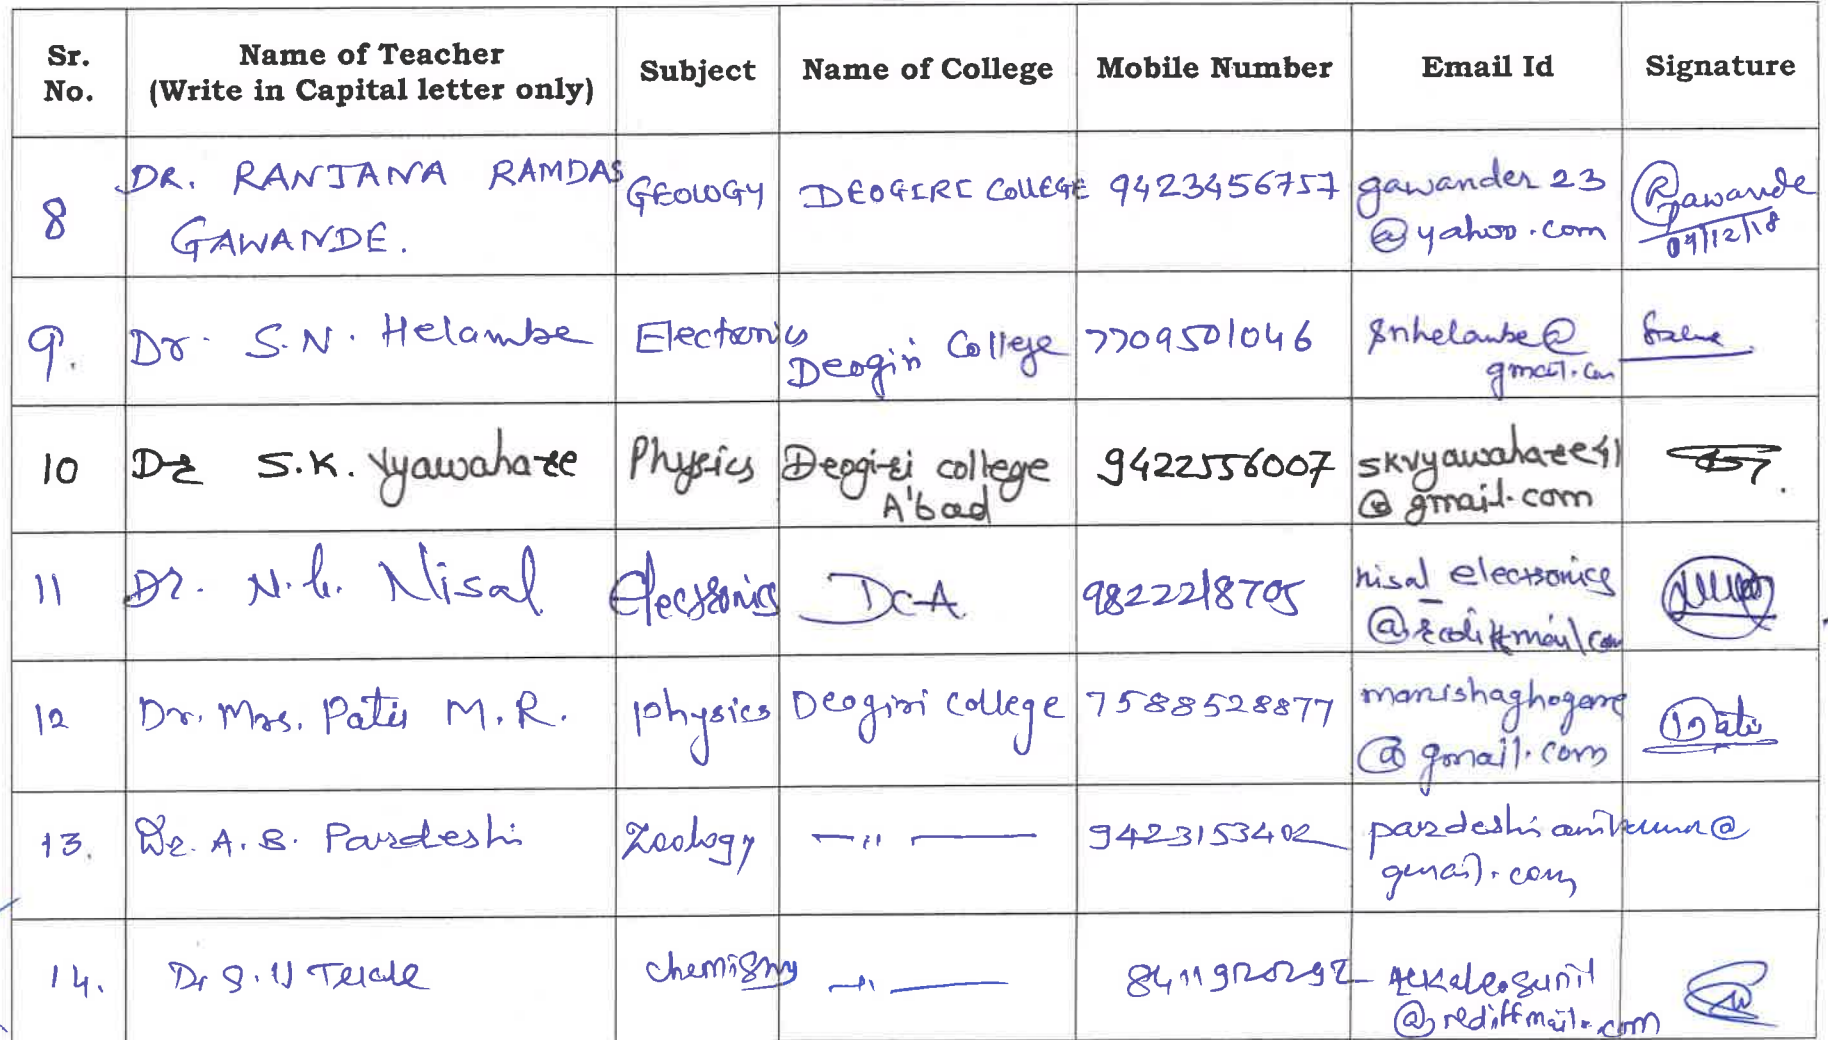 Sr. No. Name of Teacher (Write in Capital letter only) Subject Name of College Mobile Number Email Id Signature
8 DR. RANJANA RAMDAS GAWANDE. GEOLOGY DEOGIRI COLLEGE 9423456757 gawander23 @yahoo.com Gawande 04/12/18
9. Dr. S.N. Helambe Electronics Deogiri College 7709501046 snhelambe@ gmail.com
10 Dr S.K. Vyawahare Physics Deogiri college A'bad 9422556007 skvyawahare41 @gmail.com
11 Dr. Nisal Electronics 9822218705 nisal_electronics @rediffmail.com
12 Dr. Mrs. Patil M.R. physics Deogiri College 7588528877 manishaghogare @gmail.com Patil
13. Dr. A.B. Pardeshi Zoology —"— 9423153402 gmail.com
14. Dr S.U chemistry —"— @rediffmail.com